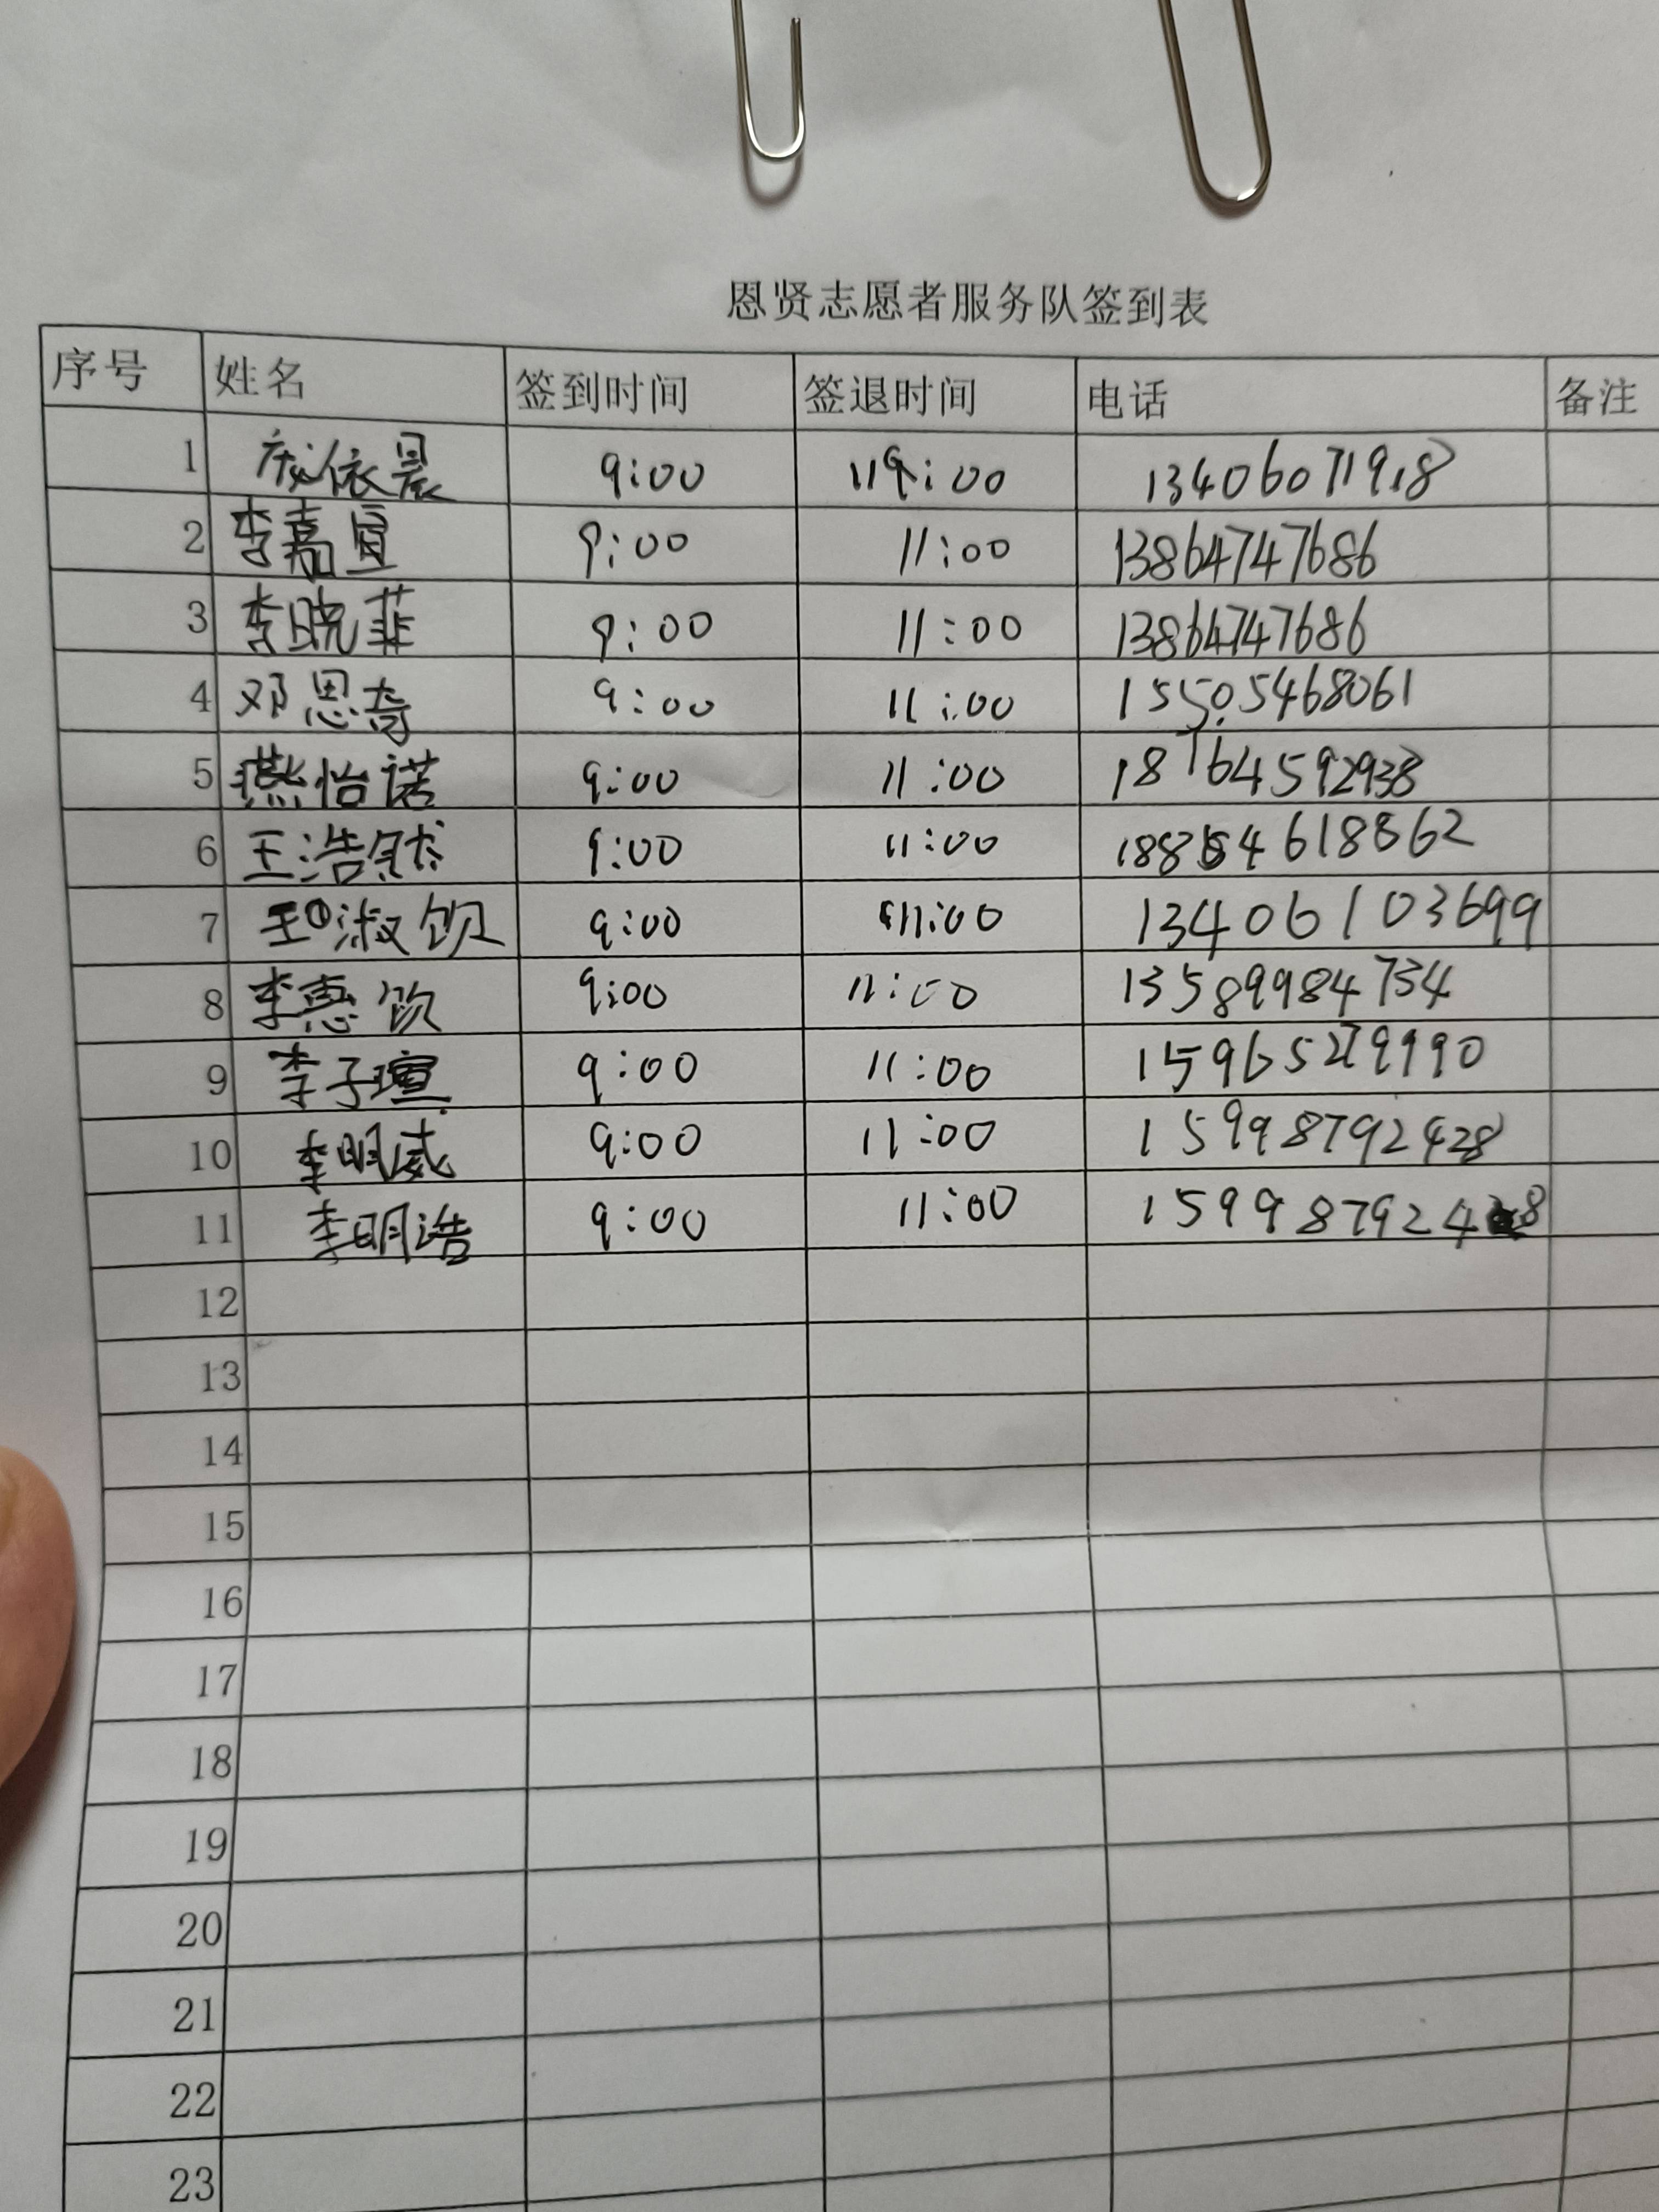 恩贤志愿者服务队签到表
序号 姓名 签到时间 签退时间 电话 备注
1 依晨 9:00 :00
2 李嘉宣 9:00 11:00 13864747686
3 李晓菲 9:00 11:00 13864747686
4 邓思奇 9:00 11:00 15505468061
5 燕怡诺 9:00 11:00 18764592938
6 王浩然 9:00 11:00
7 王淑饮 9:00 11:00 13406103699
8 李惠饮 9:00 11:00 13589984734
9 李子瑄 9:00 11:00
10 李明威 9:00 11:00 15998792428
11 李明浩 9:00 11:00
12
13
14
15
16
17
18
19
20
21
22
23